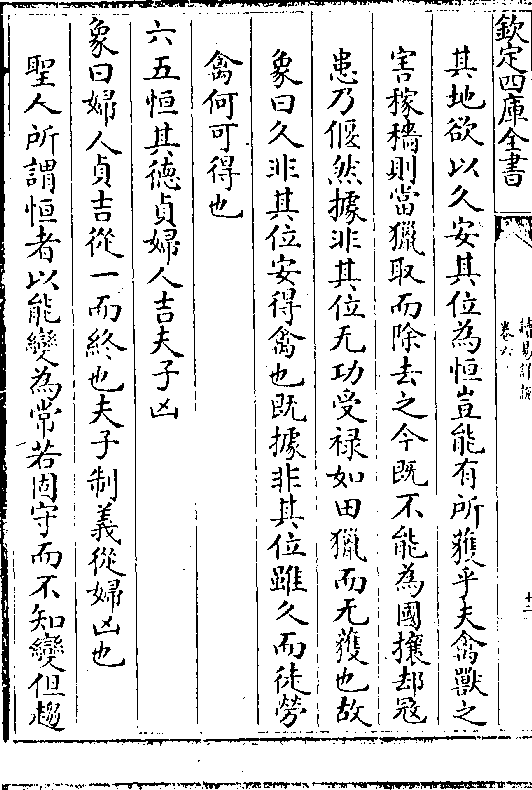 欽定四庫全書
卷六
其地欲以久安其位為恒豈能有所獲乎夫禽獸之
害稼穡則當獵取而除去之今既不能為國攘却冦
患乃偃然據非其位无功受禄如田獵而无獲也故
象曰久非其位安得禽也既據非其位雖久而徒勞
禽何可得也
六五恒其徳貞婦人吉夫子凶
象曰婦人貞吉從一而終也夫子制義從婦凶也
聖人所謂恒者以能變為常若固守而不知變但趨